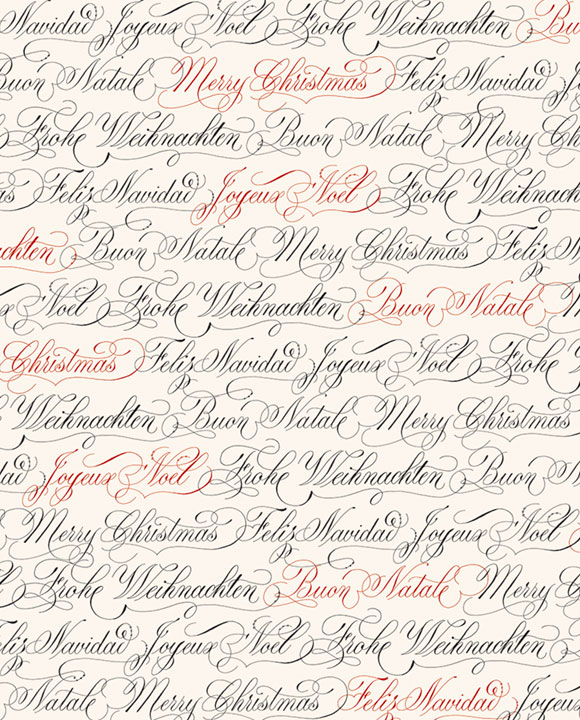 Navidad Joyeux Noel Frohe Weihnachten Bu
Buon Natale Merry Christmas Feliz Navidad
Frohe Weihnachten Buon Natale Merry
as Feliz Navidad Joyeux Noel Frohe Weihnachten
achten Buon Natale Merry Christmas Feliz N
x Noel Frohe Weihnachten Buon Natale M
Christmas Feliz Navidad Joyeux Noel Frohe
Weihnachten Buon Natale Merry Christmas
dad Joyeux Noel Frohe Weihnachten Buon
Merry Christmas Feliz Navidad Joyeux Noel
Frohe Weihnachten Buon Natale Merry
Feliz Navidad Joyeux Noel Frohe Weihnachten
Natale Merry Christmas Feliz Navidad